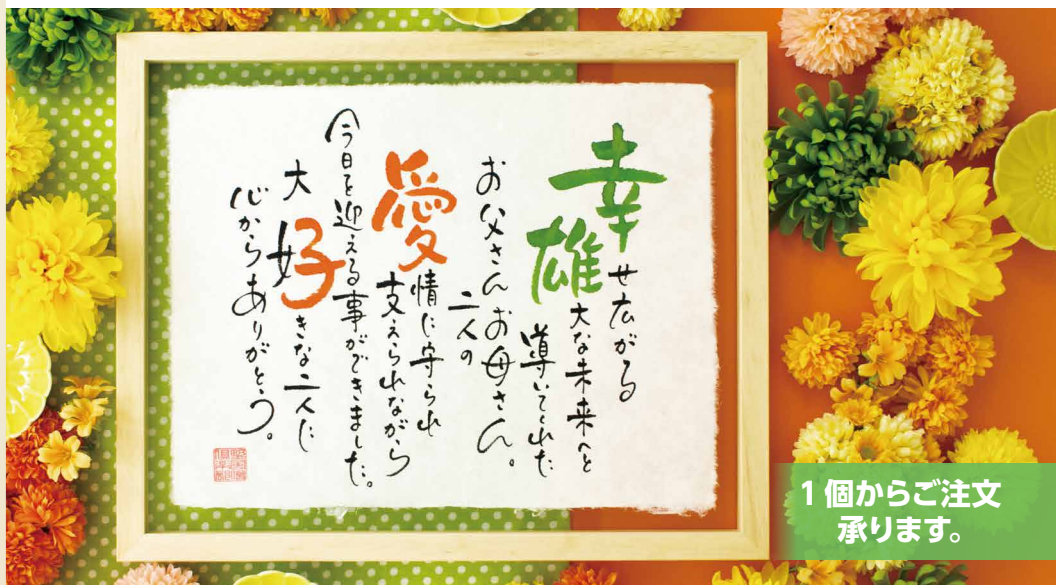 幸せ広がる
雄大な未来へと
導いてくれた
お父さんお母さん。
二人の
愛情に守られ
支えられながら
今日を迎える事ができました。
大好きな二人に
心からありがとう。
1個からご注文
承ります。